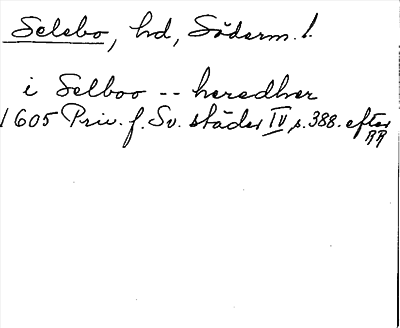 Selebo, hd, Söderm. l.
i Selboo -- heredher
1605 Priv. f. Sv. städer IV s. 388. efter
RR